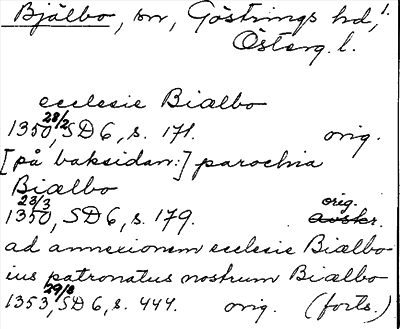 Bjälbo, sn, Göstrings hd, 1.
Österg. l.
ecclesie Biælbo
1350 28/2, SD 6, s. 171. orig.
[på baksidan:] parochia
Biælbo
1350 23/3, SD 6, s. 179. orig. avskr.
ad annexionem ecclesie Biælbo
ius patronatus nostrum Biælbo
1353 29/8, SD 6, s. 444. orig. (forts.)